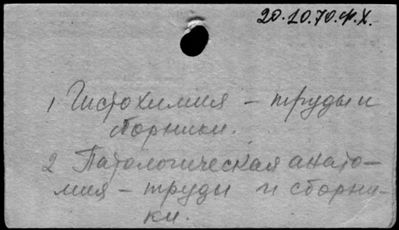 20.10.70.Ф.Х.
1 Гистохимия – труды и
сборники.
2 Патологическая анато-
мия – труды и сборни-
ки.